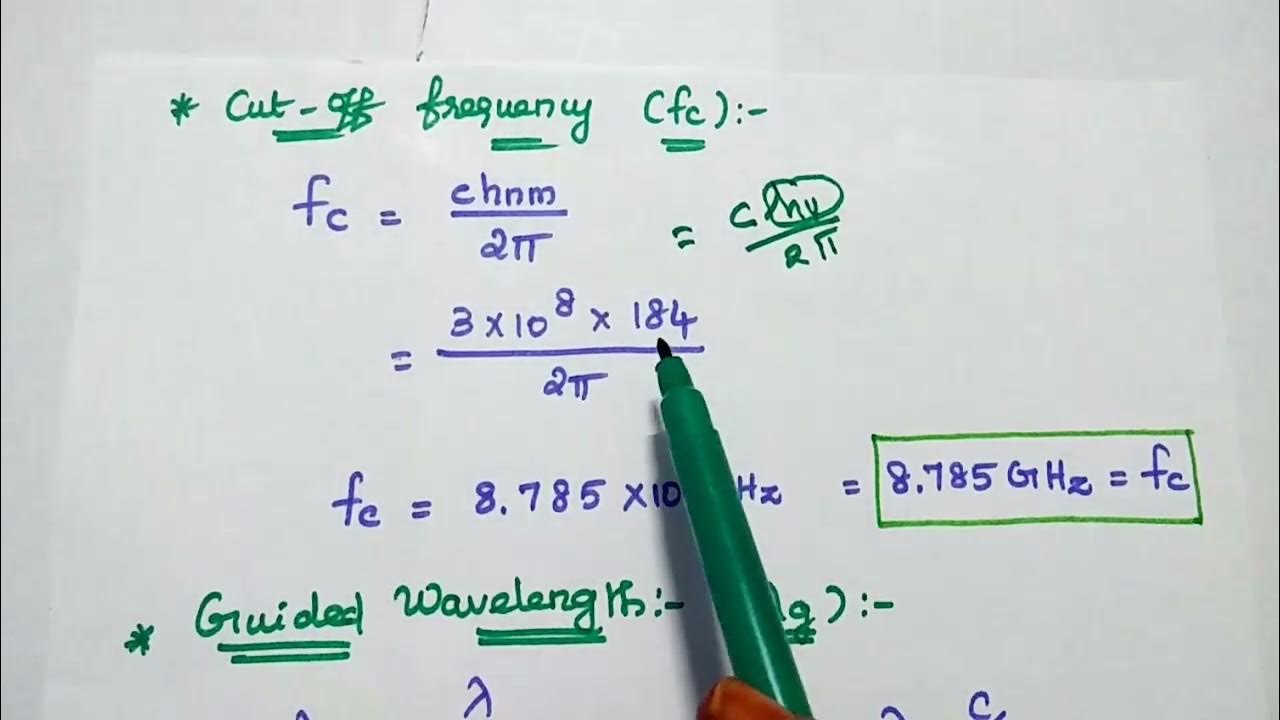 * Cut-off frequency (fc):-
fc = chnm/2π = c hnm/2π
= 3×10⁸ × 184/2π
fc = 8.785 ×10 Hz = 8.785 GHz = fc
* Guided Wavelength:- g):-
λ c